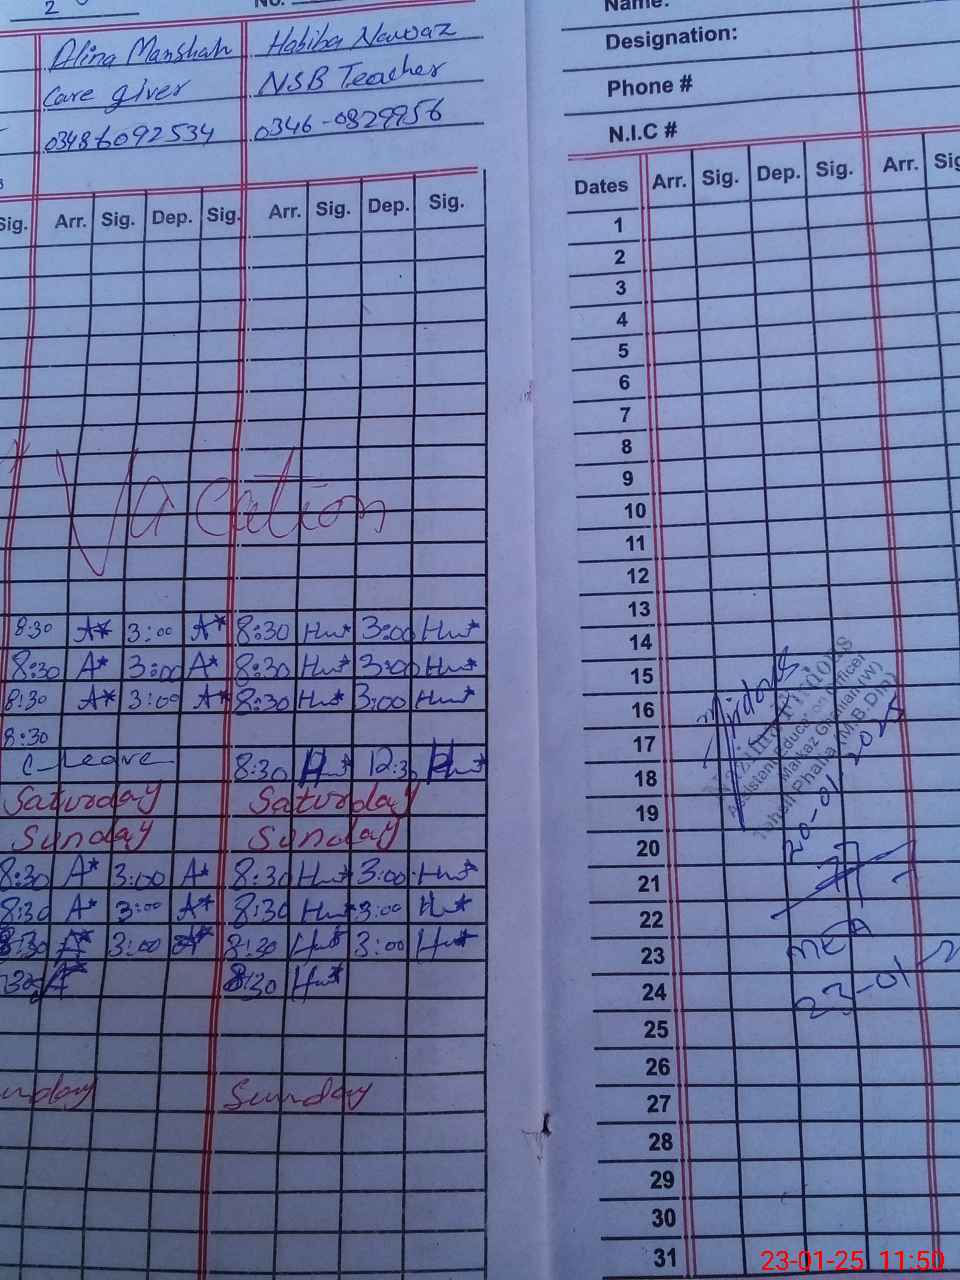 2
No.
Alina Manshah Habiba Nawaz
Care giver NSB Teacher
03486092534 0346-0829956
Sig. Arr. Sig. Dep. Sig. Arr. Sig. Dep. Sig.
Vacation
8:30 A* 3:00 A* 8:30 3:00
8:30 A* 3:00 A* 8:30 3:00
8:30 A* 3:00 A* 8:30 3:00
8:30
C Leave 8:30 12:30
Saturday Saturday
Sunday Sunday
8:30 A* 3:00 A* 8:30 3:00
8:30 A* 3:00 A* 8:30 3:00
8:30 A* 3:00 A* 8:30 3:00
A* 8:30
unday Sunday
Name:
Designation:
Phone #
N.I.C #
Dates Arr. Sig. Dep. Sig. Arr. Sig
1
2
3
4
5
6
7
8
9
10
11
12
13
14
15
16
17
18
19
20
21
22
23
24
25
26
27
28
29
30
31
Assistant Education Officer
Markaz
Tehsil Phalia (M.B.Din)
20-01-2025
MEA
23-01-2
23-01-25 11:50